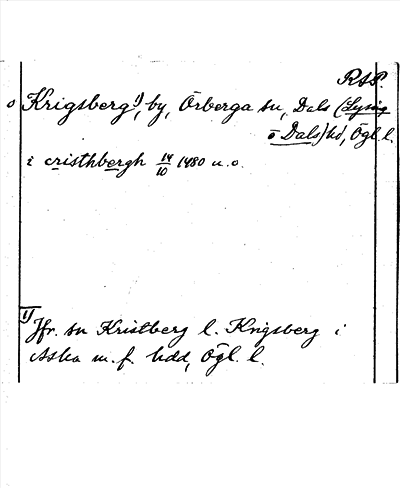 RAP.
o Krigsberg¹⁾, by, Örberga sn, Dals (Lysing
o Dals) hd, Ögl. l.
i cristhbergh 14/10 1480 u.o.
1) Jfr. sn Kristberg l. Krigsberg i
Aska m. f. hdd, Ögl. l.